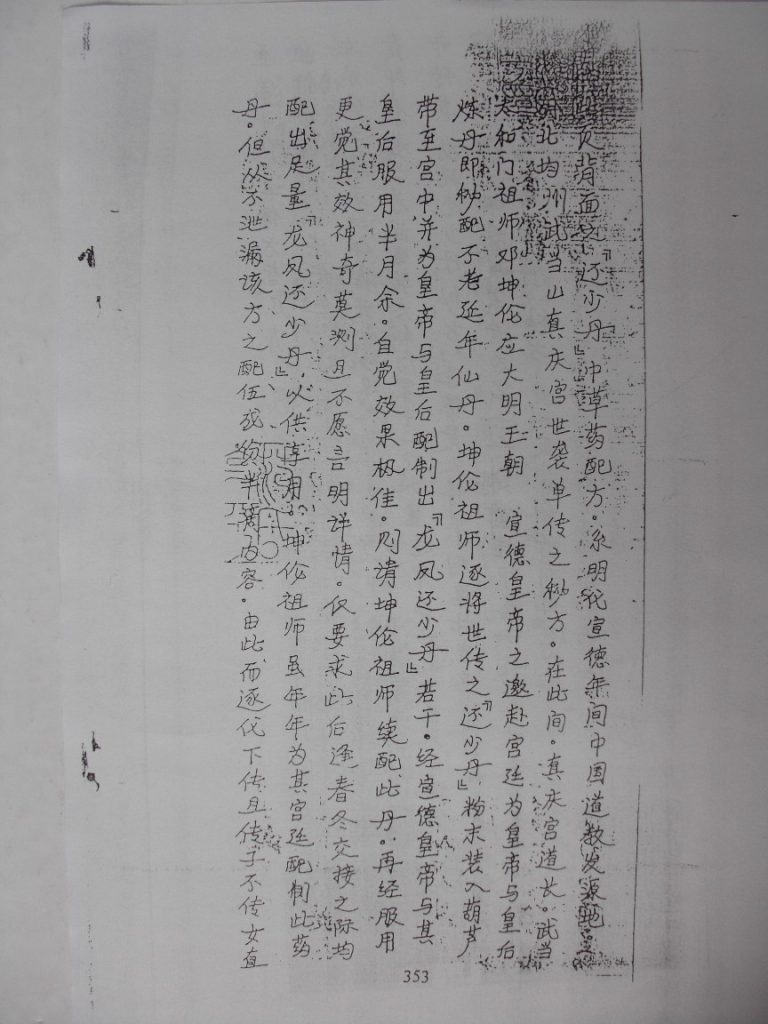 页背面之『还少丹』中草药配方。系明代宣德年间中国道教发源地。
北均州武当山真庆宫世袭单传之秘方。在此间。真庆宫道长。武当
太和门祖师邓坤伦应大明王朝 宣德皇帝之邀赴宫廷为皇帝与皇后
炼丹即秘配不老延年仙丹。坤伦祖师逐将世传之『还少丹』粉末装入葫芦
带至宫中并为皇帝与皇后配制出『龙凤还少丹』若干。经宣德皇帝与其
皇后服用半月余。自觉效果极佳。则请坤伦祖师续配此丹。再经服用
更觉其效神奇莫测且不愿言明详情。仅要求此后逢春冬交接之际均
配出足量『龙凤还少丹』以供享用。坤伦祖师虽年年为其宫廷配制此药
丹。但从不泄漏该方之配伍或 半 内容。由此而逐代下传且传子不传女直
353